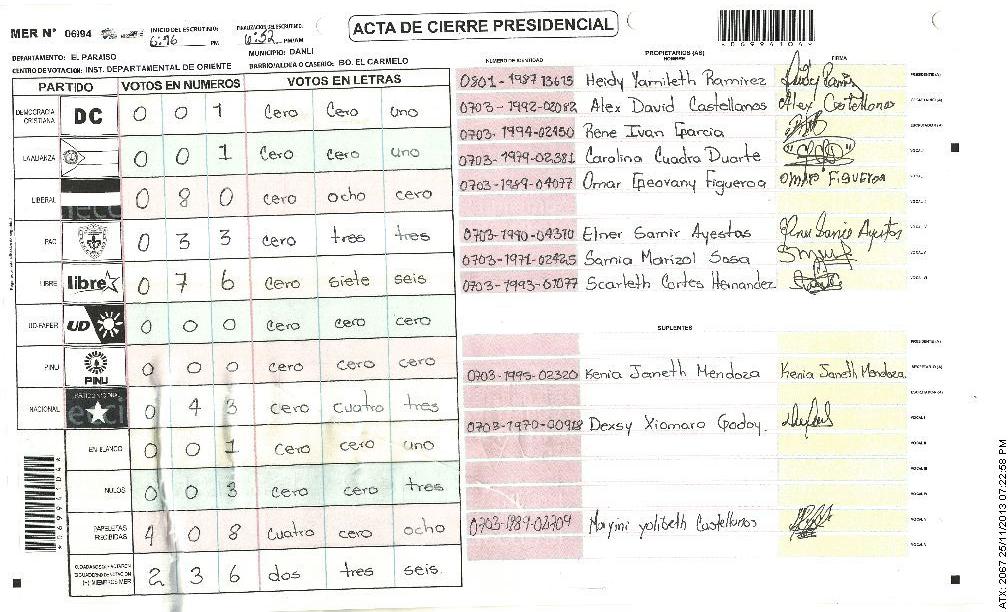 ACTA DE CIERRE PRESIDENCIAL
MER N° 06994 INICIO DEL ESCRUTINIO: PM FINALIZACION DEL ESCRUTINIO: 6:52 PM/AM
DEPARTAMENTO: EL PARAISO MUNICIPIO: DANLI
CENTRO DE VOTACION: INST. DEPARTAMENTAL DE ORIENTE BARRIO/ALDEA O CASERIO: BO. EL CARMELO
*06994104*
PARTIDO VOTOS EN NUMEROS VOTOS EN LETRAS
DEMOCRACIA CRISTIANA DC 0 0 1 cero cero uno
LA ALIANZA 0 0 1 cero cero uno
LIBERAL 0 8 0 cero ocho cero
PAC 0 3 3 cero tres tres
LIBRE libre 0 7 6 cero siete seis
UD-FAPER UD 0 0 0 cero cero cero
PINU PINU 0 0 0 cero cero cero
NACIONAL PARTIDO NACIONAL 0 4 3 cero cuatro tres
EN BLANCO 0 0 1 cero cero uno
NULOS 0 0 3 cero cero tres
PAPELETAS RECIBIDAS 4 0 8 cuatro cero ocho
2 3 6 dos tres seis
(+) MIEMBROS MER
*06994104*
NUMERO DE IDENTIDAD PROPIETARIOS (AS) NOMBRE FIRMA
0801-1987 13615 Heidy Yamileth Ramirez PRESIDENTE (A)
0703-1992-02082 Alex David Castellanos Alex Castellanos SECRETARIO (A)
0703-1994-02150 Rene Ivan Garcia ESCRUTADOR (A)
0703-1979-02381 Carolina Cuadra Duarte VOCAL I
0703-1989-04077 Omar Geovany Figueroa OMAR FIGUEROA VOCAL II
VOCAL III
0703-1990-04310 Elner Samir Ayestas Elner Samir Ayestas VOCAL IV
0703-1971-02425 Samia Marizol Sosa VOCAL V
0703-1993-01077 Scarleth Cortes Hernandez VOCAL VI
SUPLENTES
PRESIDENTE (A)
0703-1995-02320 Kenia Janeth Mendoza Kenia Janeth Mendoza. SECRETARIO (A)
ESCRUTADOR (A)
0703-1970-00918 Dexsy Xiomara Godoy. VOCAL I
VOCAL II
VOCAL III
VOCAL IV
0703-1989-02709 Mayini yolibeth Castellanos VOCAL V
VOCAL VI
ATX: 2067 25/11/2013 07:22:58 PM